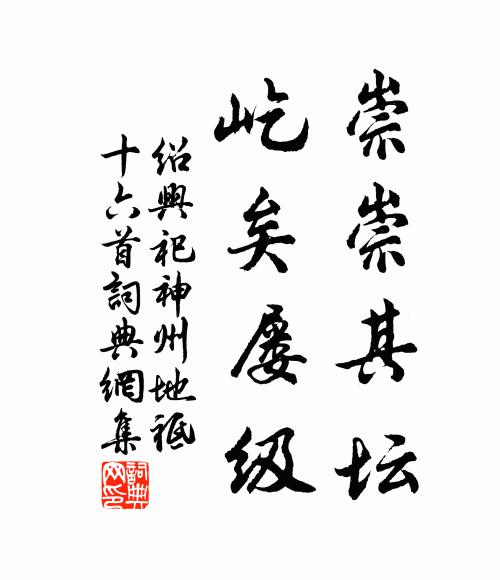 崇崇其坛
屹矣屡级
绍興祀神州地祇
十六首詞典網集
詞典
网印